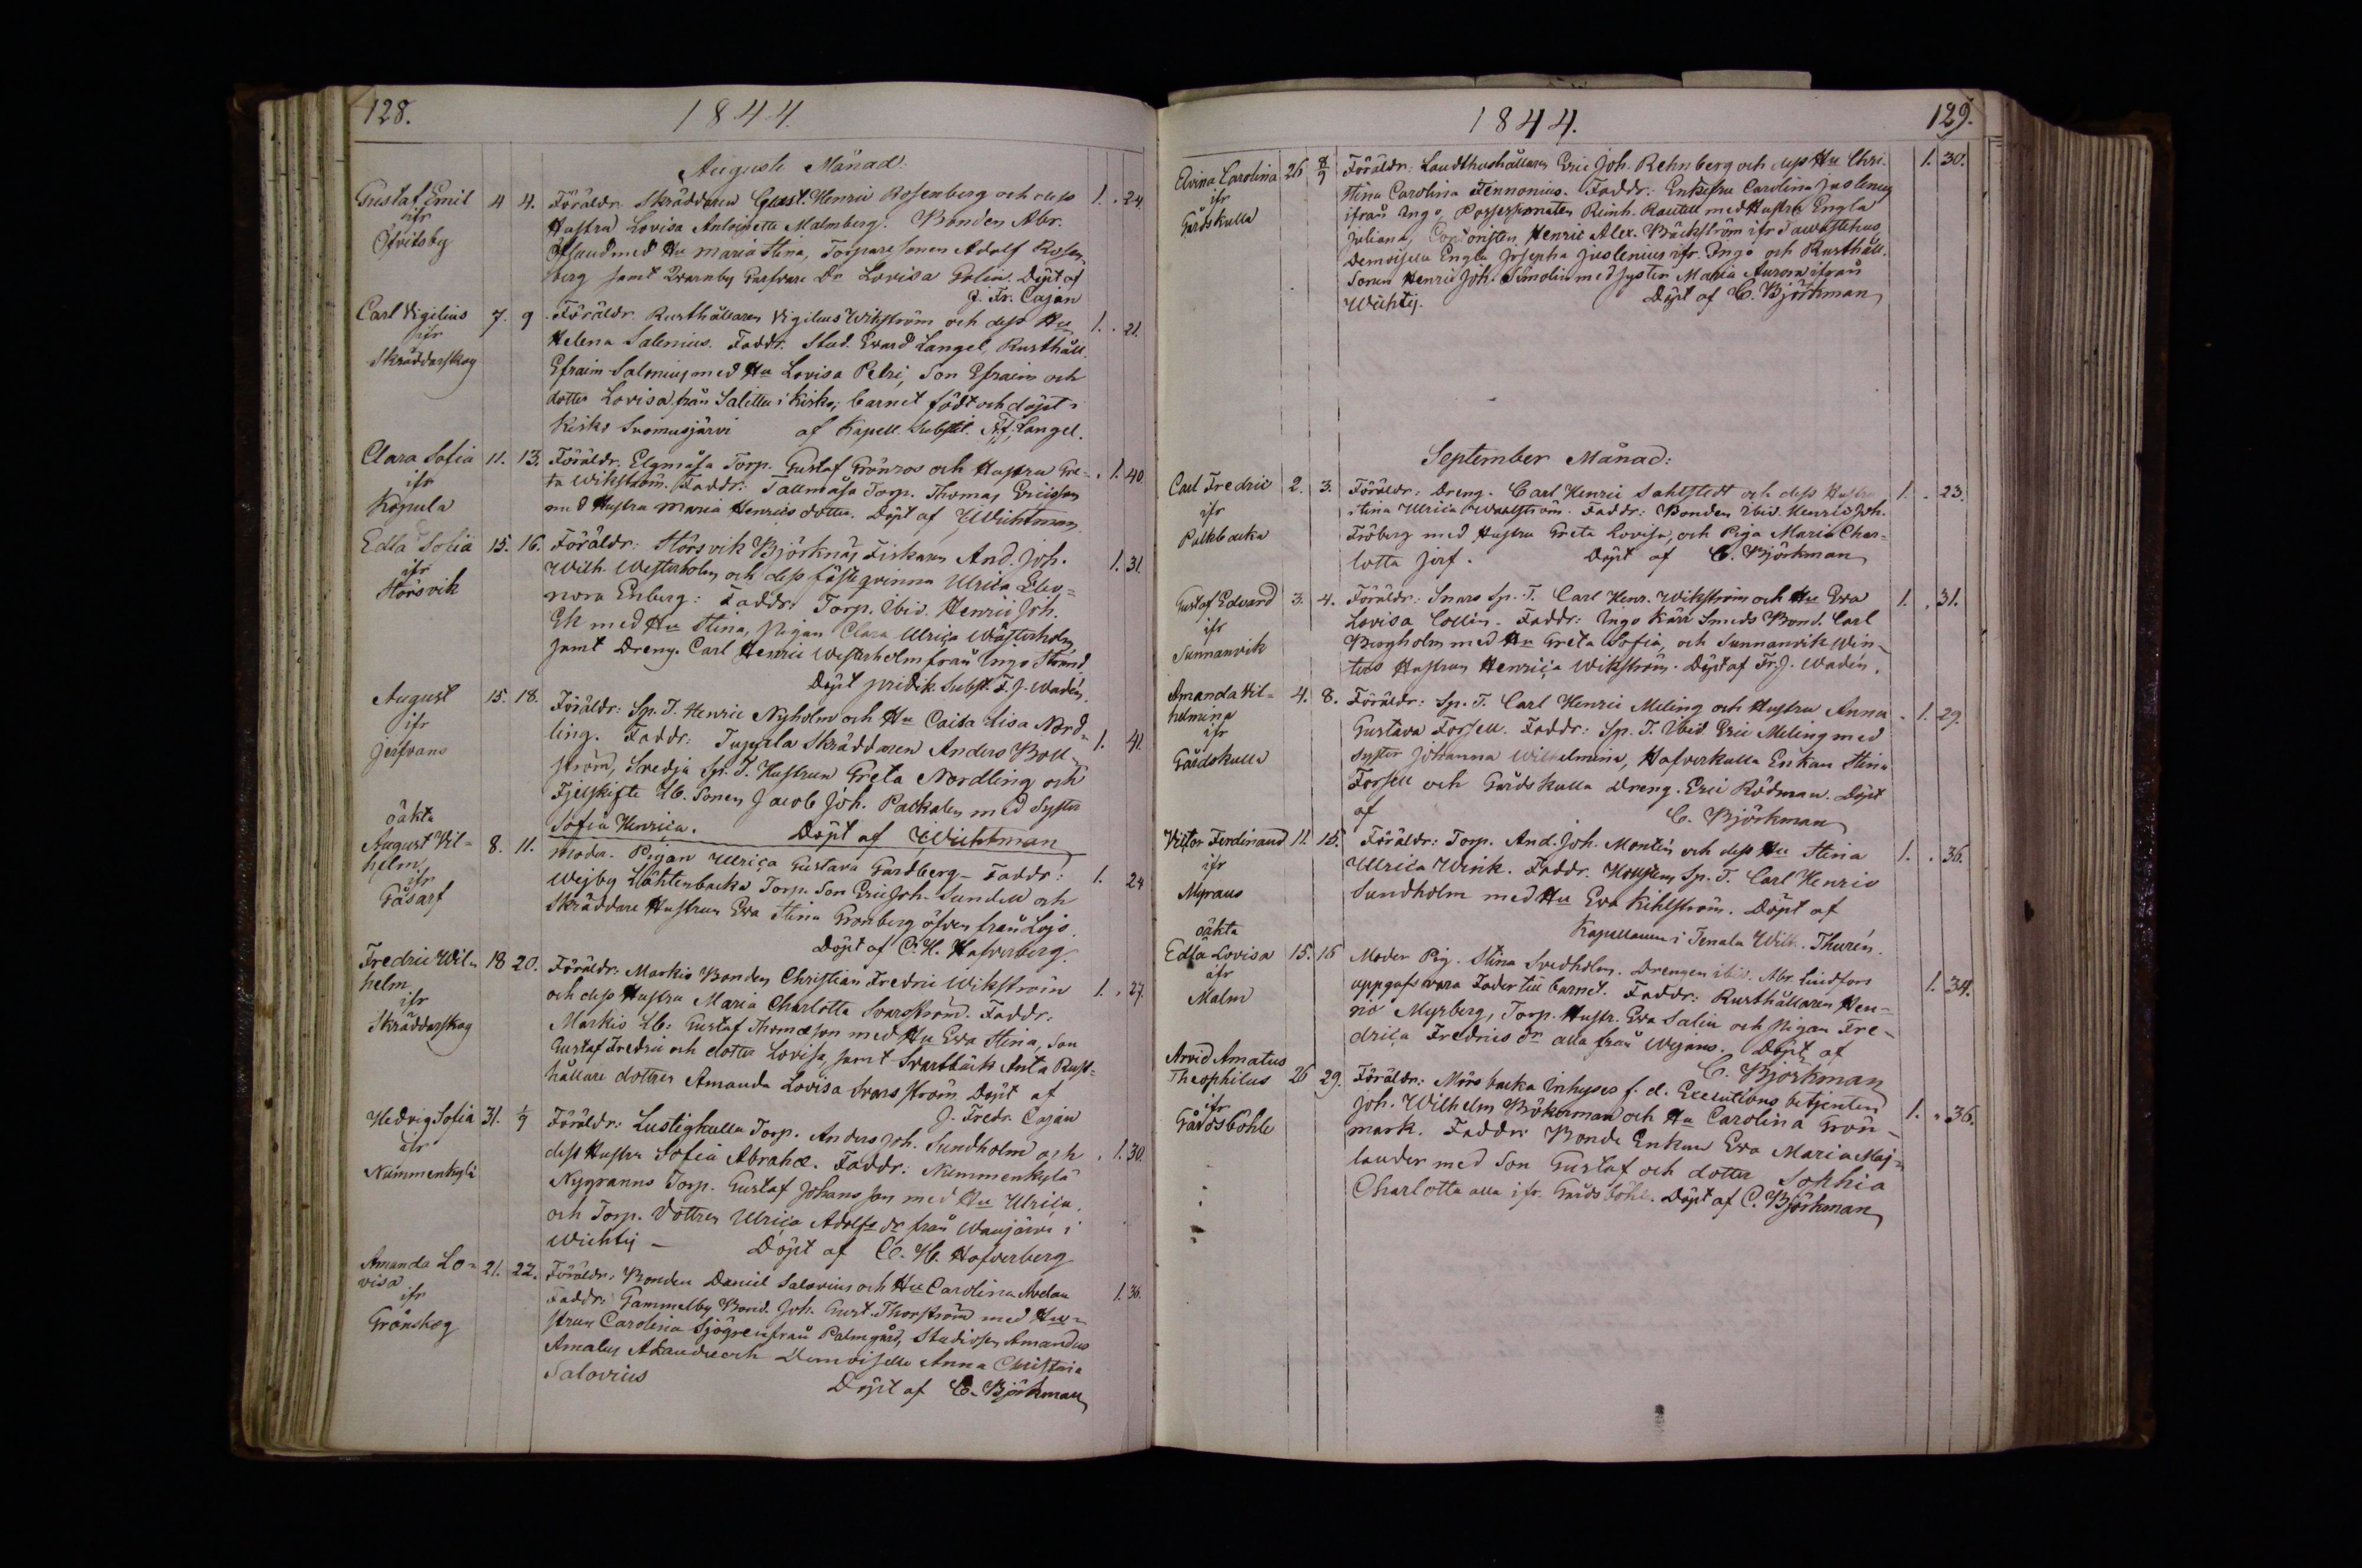 128.
1844.
Augusti Månad.
Gustaf Emil 4 4. Föräldr. Skräddaren Gust. Henric Rosenberg och dess 1. 24.
ifr
Hustru Lovisa Antoinetta Malmberg. Bonden Abr.
med Hu Maria Stina, Torpare Sonen Adolf Rosen-
berg samt Qvarnby Dr Lovisa Döpt af
J. Fr. Cajan
Carl Vigilius 7. 9 Föräldr. Rusthållaren Vigilius Wikström och dess Hu 1. 21.
ifr
Skräddarskog
Helena Salenius. Faddr. Stud. Evard Langel, Rusthåll.
Efraim Salenius med Hu Lovisa Petri, Son Efraim och
dotter Lovisa från Salittu i Kisko, barnet födt och döpt i
Kisko Suomusjärvi af Kapell. Substit. Langel.
Clara Sofia 11. 13. Föräldr. Elgmåsa Torp. Gustaf Grönroos och Hustru Gre- 1. 40
ifr
Kopula
ta Wikström. Faddr: Tallmåsa Torp. Thomas Ericsson
med Hustru Maria Henrics dotter. Döpt af Wichtman
Edla Sofia 15. 16. Föräldr: Störsvik Björknäs Fiskaren And. Joh. 1. 31.
ifr
Störsvik
Wilh. Westerholm och dess fästeqvinna Ulrica Eleo-
nora Enberg: Faddr: Torp. ibid. Henric Joh.
Ek med Hu Stina, pigan Clara Ulrica Wästerholm
samt Dreng. Carl Henric Westerholm från Ingo Strand
Döpt predik. Subst. F. J. Wadén
August 15. 18. Föräldr: Sp. T. Henric Nyholm och Hu Caisa Lisa Nord- 1. 41.
ifr
Jerfvans
ling. Faddr: Tuppala Skräddaren Anders Boll-
ström, Svedja Sp. T. Hustrun Greta Nordling och
Fjelskifte Hb. Sonen Jacob Joh. Packalen med Syster
Sofia Henrica. Döpt af Wichtman
oäkta
August Vil- 8. 11. Moder. Pigan Ulrica Gustava Gardberg – Faddr: 1. 24
helm
ifr
Gåsarf
Wejby Torp. Son Eric Joh. Sundell och
Skräddare Hustrun Eva Stina Gronberg äfven från Lojo.
Döpt af C. H. Hafverberg.
Fredric Wil- 18 20. Föräldr: Markis Bonden Christian Fredric Wikström 1. 27.
helm
ifr
Skräddarskog
och dess Hustru Maria Charlotta Svarström. Faddr:
Markis Hb: Gustaf Thomasson med Hu Eva Stina, Son
Gustaf Fredric och dotter Lovisa, samt Svartbäck Anta Rust-
hållare dottren Amanda Lovisa Svarsström. Döpt af
J. Fredr. Cajan
Hedvig Sofia 31. 1/9 Föräldr: Lustigkulla Torp. Anders Joh. Sundholm och 1. 30.
ifr
Nummenkylä
dess Hustru Sofia Abrahd. Faddr: Nummenkylä
Nygranns Torp. Gustaf Johansson med Hu Ulrica,
och Torp. dottren Ulrica Adolfs dr från Wanjärvi i
Wichtis – Döpt af C. H. Hafverberg
Amanda Lo- 21. 22. Föräldr: Bonden Daniel Salovius och Hu Carolina Avelan 1. 36.
visa
ifr
Grönskog
Faddr: Gammelby Bond. Joh. Gust. Thorström med Hu-
strun Carolina Sjögren från Palmgård, Studiosen Amandus
Amalus och Demoiselle Anna Christina
Salovius Döpt af C. Björkman
1844.
129.
Elvina Carolina 26 8/9 Föräldr: Landthushållaren Eric Joh. Rehnberg och dess Hu Chri- 1. 30.
ifr
Gårdskulla
stina Carolina Fennonius. Faddr: Enkefru Carolina Juslenius
ifrån Ingo, Possessionaten Reinh. Rautell med Hustru Engla
Juliana, Henric Alex. Bäckström ifr Tawastehus,
Demoiselle Engla Josepha Juslenius ifr. Ingo och Rusthåll.
Sonen Henric Joh. Simolin med syster Maria Aurora ifrån
Wichtis. Döpt af C. Björkman
September Månad:
Carl Fredric 2. 3. Föräldr: Dreng. Carl Henric Sahlstedt och dess Hustru 1. 23.
ifr
Palkbacka
Stina Ulrica Wahlström. Faddr: Bonden ibid. Henric Joh.
Fröberg med Hustru Greta Lovisa, och Piga Maria Char-
lotta Döpt af C. Björkman
Gustaf Edvard 3. 4. Föräldr: Snars Sp. T. Carl Henr. Wikström och Hu Eva 1. 31.
ifr
Sunnanvik
Lovisa Collin. Faddr: Ingo Kärr Smeds Bond. Carl
Borgholm med Hu Greta Sofia, och Sunnanvik Win-
ters Hustrun Henrica Wikström. Döpt af Fr. J. Wadén.
Amanda Vil- 4. 8. Föräldr: Sp. T. Carl Henric Meling och Hustru Anna 1. 29.
helmina
ifr
Gårdskulla
Gustava Forsell. Faddr: Sp. T. ibid Eric Meling med
syster Johanna Wilhelmina, Hafverkulla Enkan Stina
Forsell och Gårdskulla Dreng. Eric Rödman. Döpt
af C. Björkman
Victor Ferdinand 11. 15. Föräldr: Torp. And. Joh. Montin och dess Hu Stina 1. 36.
ifr
Myrans
Ulrica Wink. Faddr. Sp. T. Carl Henric
Sundholm med Hu Eva Kihlström. Döpt af
Kapellanen i Tenala Wilh. Thurén.
oäkta
Edla Lovisa 15. 16 Moder Pig. Stina Svedholm. Drengen ibid. Abr. Lindfors 1. 34.
ifr
Malm
uppgafs vara Fader till barnet. Faddr: Rusthållaren Hen-
ric Myrberg, Torp. Hustr. Eva Salin och Pigan Fre-
drica Fredrics dr alla från Wejans. Döpt af
C. Björkman
Arvid Amatus
Theophilus 26 29. Föräldr: Mörsbacka Inhyses f. d. Executions betjenten 1. 36.
ifr
Gårdsböhle
Joh. Wilhelm Bökerman och Hu Carolina Grön-
mark. Faddr: Bonde Enkan Eva Maria Maj-
lander med Son Gustaf och dotter Sophia
Charlotta alla ifr. Gårdsböhle. Döpt af C. Björkman